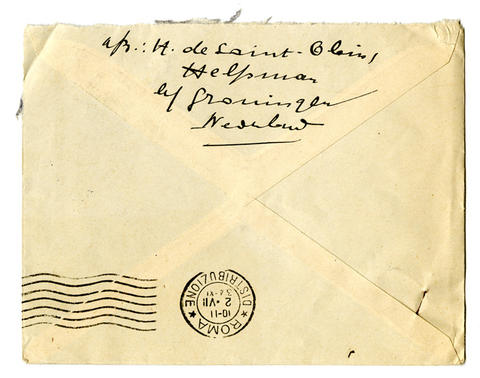 afz.: H. de Saint-Blain,
Helpman
b/ Groningen
Nederland
ROMA
DISTRIBUZIONE
10-11
2 • VII